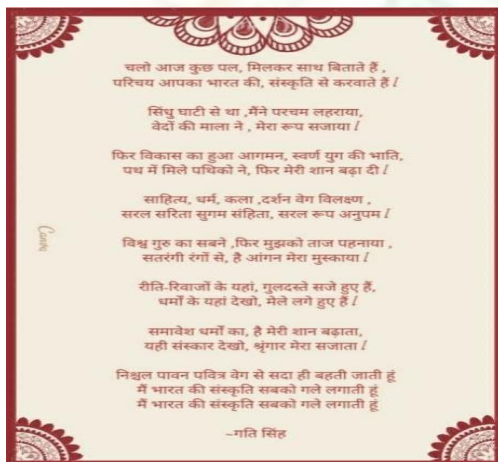 चलो आज कुछ पल, मिलकर साथ बिताते हैं ,
परिचय आपका भारत की, संस्कृति से करवाते हैं !
सिंधु घाटी से था ,मैंने परचम लहराया,
वेदों की माला ने , मेरा रूप सजाया !
फिर विकास का हुआ आगमन, स्वर्ण युग की भाति,
पथ में मिले पथिको ने, फिर मेरी शान बढ़ा दी !
साहित्य, धर्म, कला ,दर्शन वेग विलक्षण ,
सरल सरिता सुगम संहिता, सरल रूप अनुपम !
विश्व गुरु का सबने ,फिर मुझको ताज पहनाया ,
सतरंगी रंगों से, है आंगन मेरा मुस्काया !
रीति-रिवाजों के यहां, गुलदस्ते सजे हुए हैं,
धर्मों के यहां देखो, मेले लगे हुए हैं !
समावेश धर्मों का, है मेरी शान बढ़ाता,
यही संस्कार देखो, श्रृंगार मेरा सजाता !
निश्चल पावन पवित्र वेग से सदा ही बहती जाती हूं
मैं भारत की संस्कृति सबको गले लगाती हूं
मैं भारत की संस्कृति सबको गले लगाती हूं
~गति सिंह
Canva